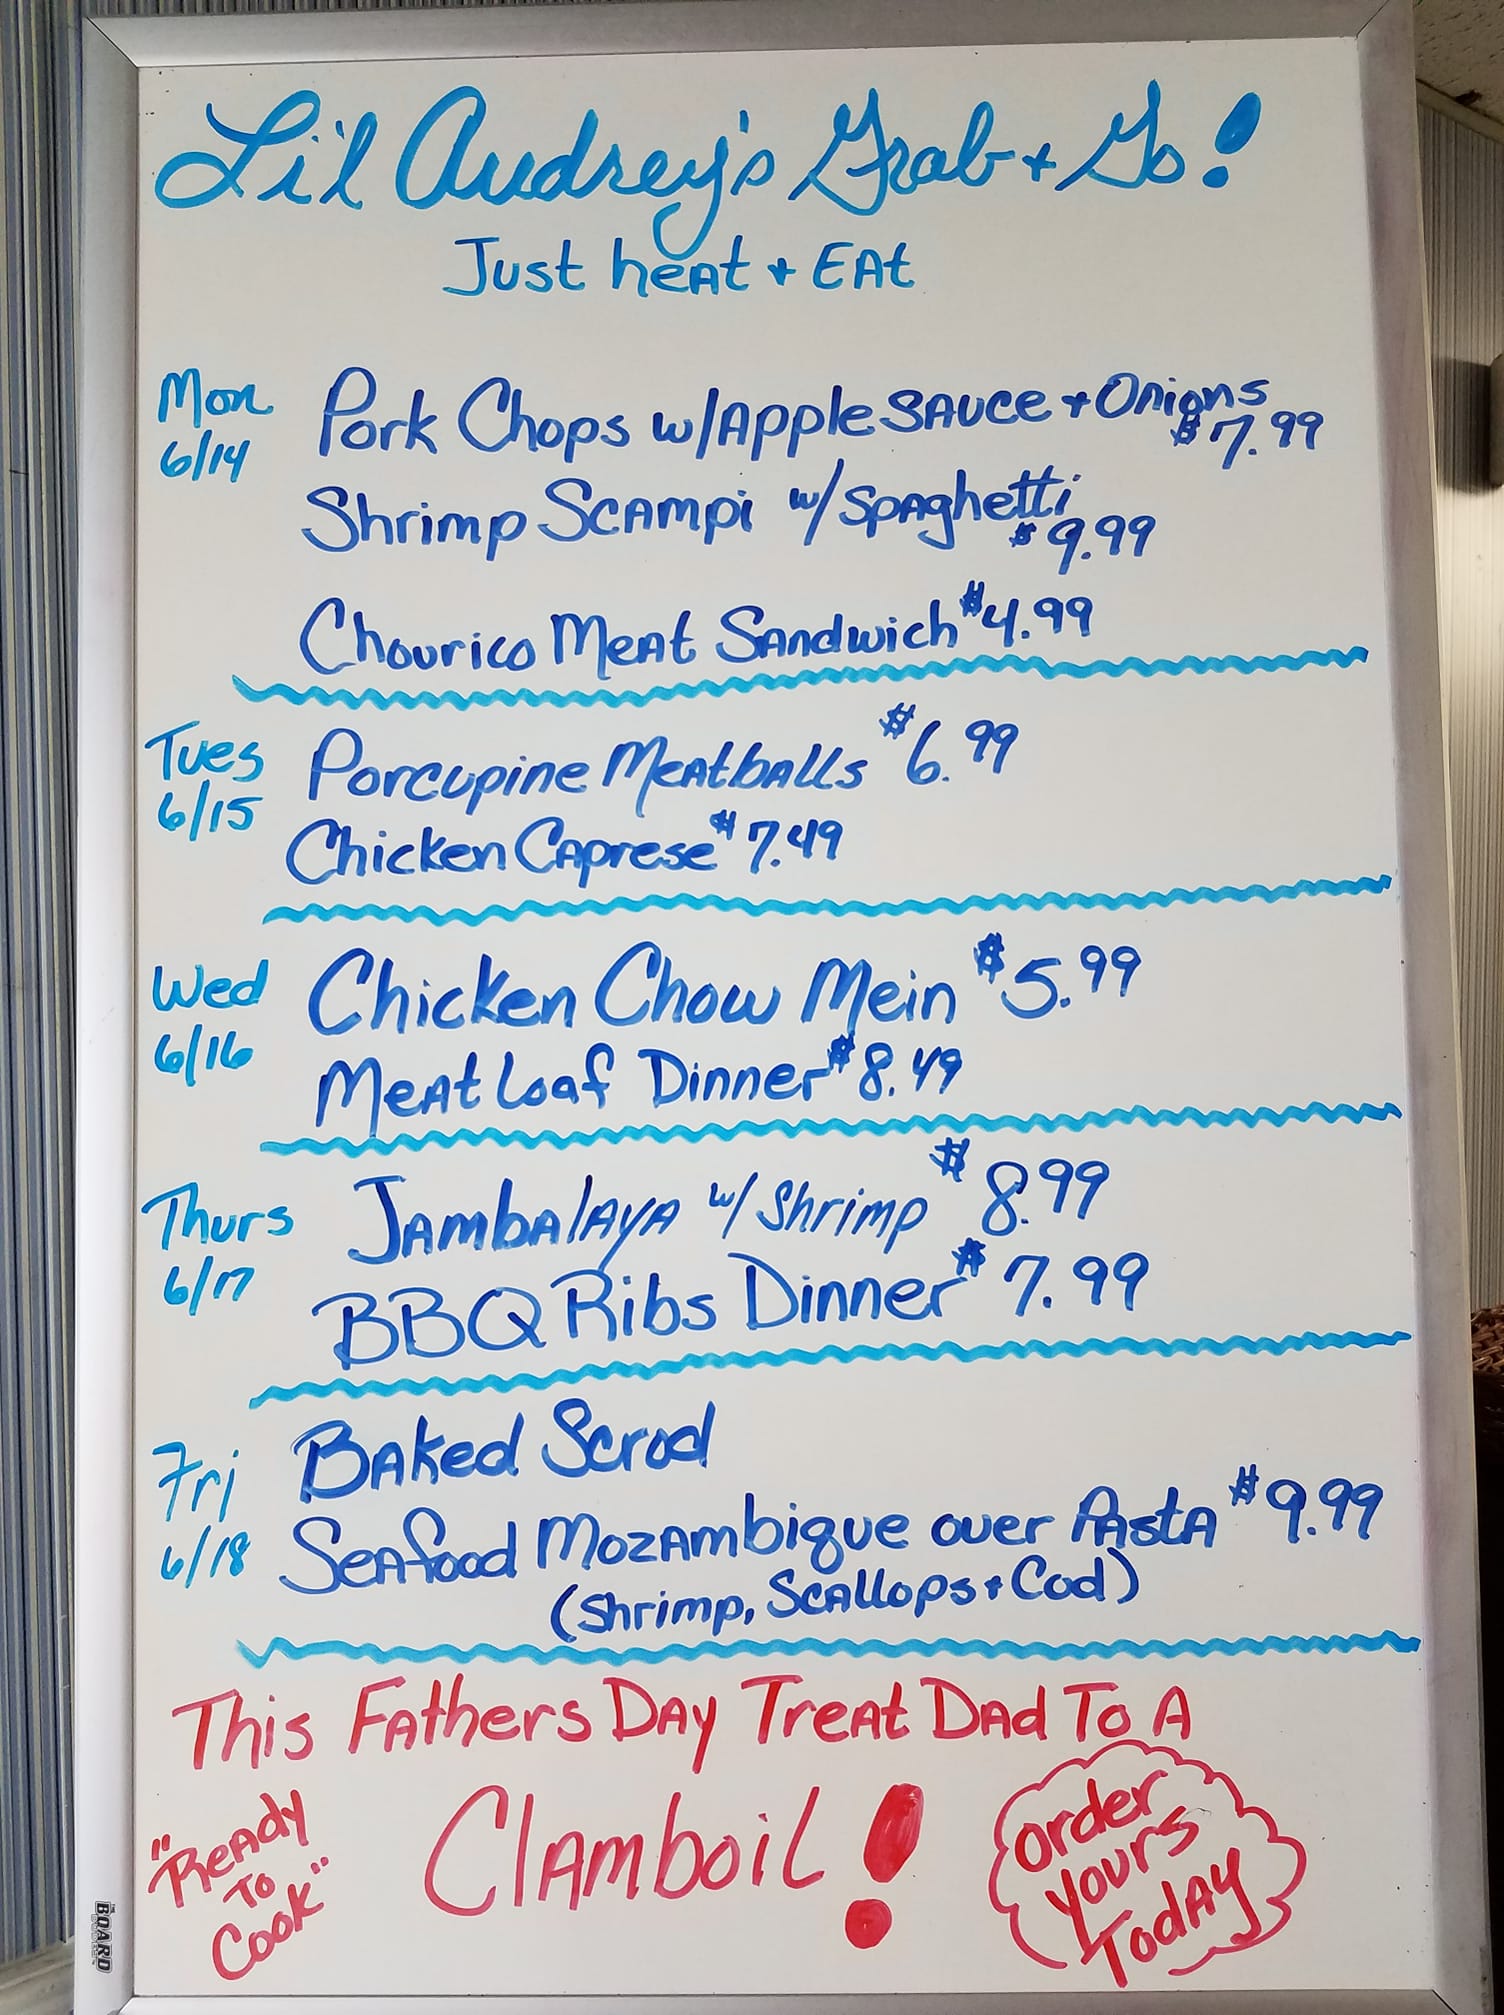 Li'l Audrey's Grab + Go!
Just heat + EAt
Mon
6/14
Pork Chops w/Apple SAuce + Onions
$7.99
Shrimp ScAmpi w/SpAghetti
$9.99
Chourico MeAt SAndwich $4.99
Tues
6/15
Porcupine MeAtbAlls $6.99
Chicken CAprese $7.49
Wed
6/16
Chicken Chow Mein $5.99
MeAtloaf Dinner $8.49
Thurs
6/17
JAmbAlAyA w/Shrimp $8.99
BBQ Ribs Dinner $7.99
Fri
6/18
BAked Scrod
SeAfood MozAmbique over PAstA $9.99
(Shrimp, ScAllops + Cod)
This FAthers DAy TreAt DAd To A
"ReAdy
To
Cook"
ClAmboil!
Order
yours
TodAy
THE BOARD